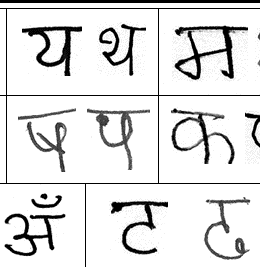 य थ म
ष प क
अँ ट ढ